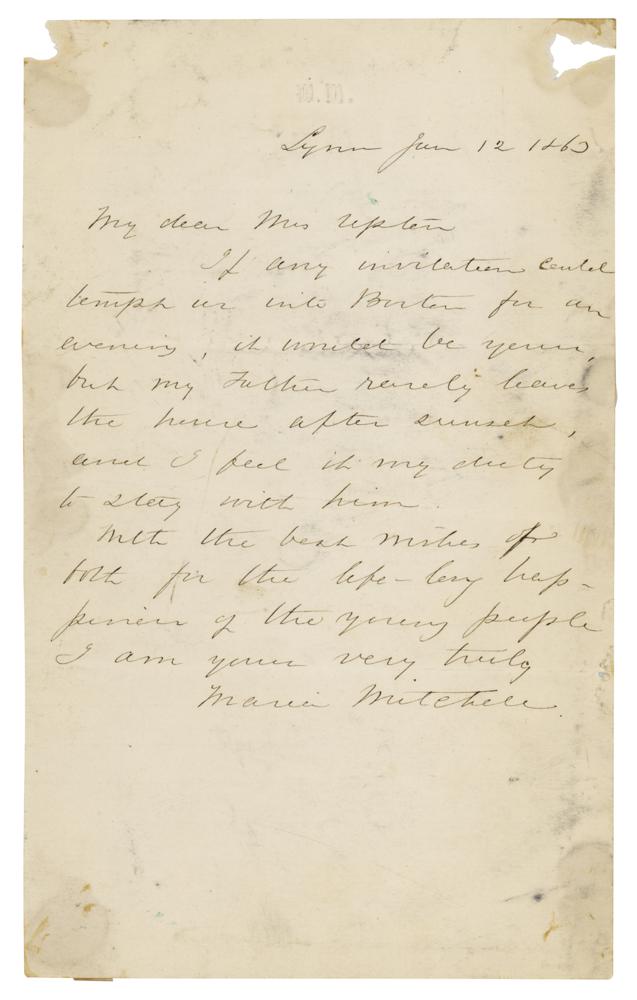 Lynn Jan 12 1863
My dear Mrs Upton
If any invitation could
tempt us into Boston for an
evening, it would be yours,
but my Father rarely leaves
the house after sunset,
and I feel it my duty
to stay with him.
With the best wishes of
both for the life-long hap-
piness of the young people
I am yours very truly
Maria Mitchell.